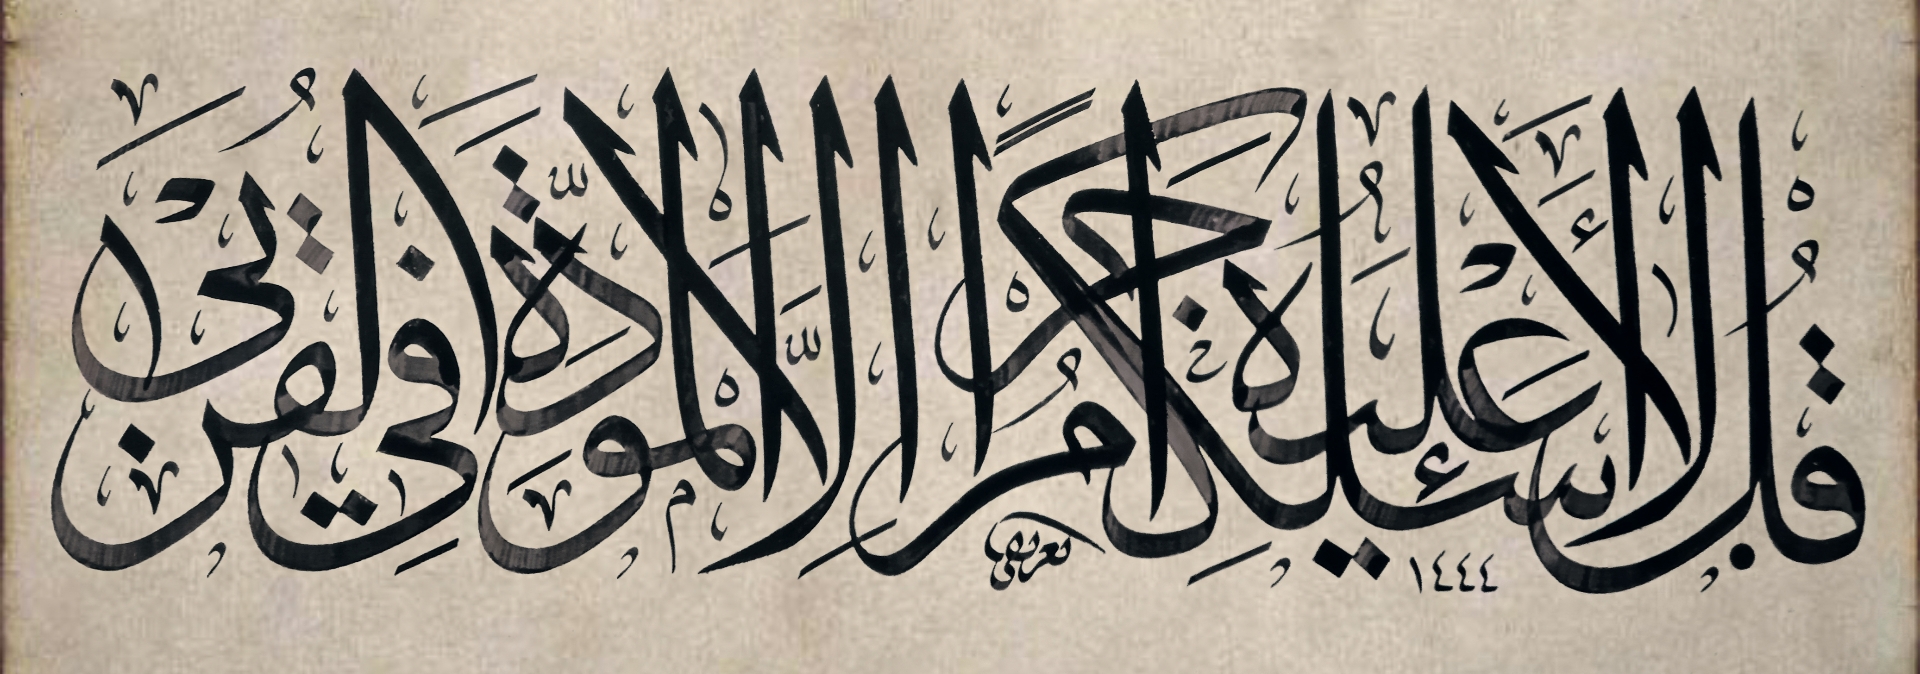 قُلْ لَا أَسْئَلُكُمْ عَلَيْهِ أَجْرًا إِلَّا الْمَوَدَّةَ فِي الْقُرْبَى
١٤٤٤